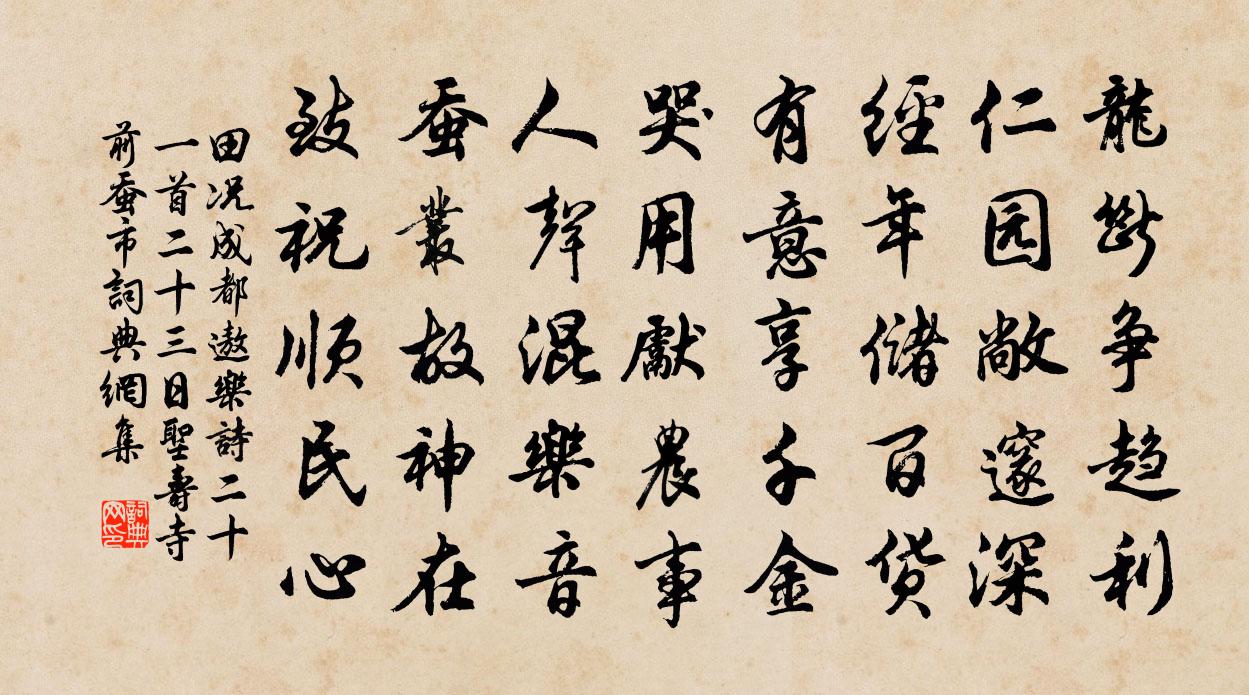 龍斷爭趋利
仁园敞邃深
經年儲百货
有意享千金
哭用獻農事
人聲混樂音
蚕叢故神在
致祝順民心
田况成都遨樂詩二十
一首二十三日聖壽寺
前蚕市詞典網集
詞典网印